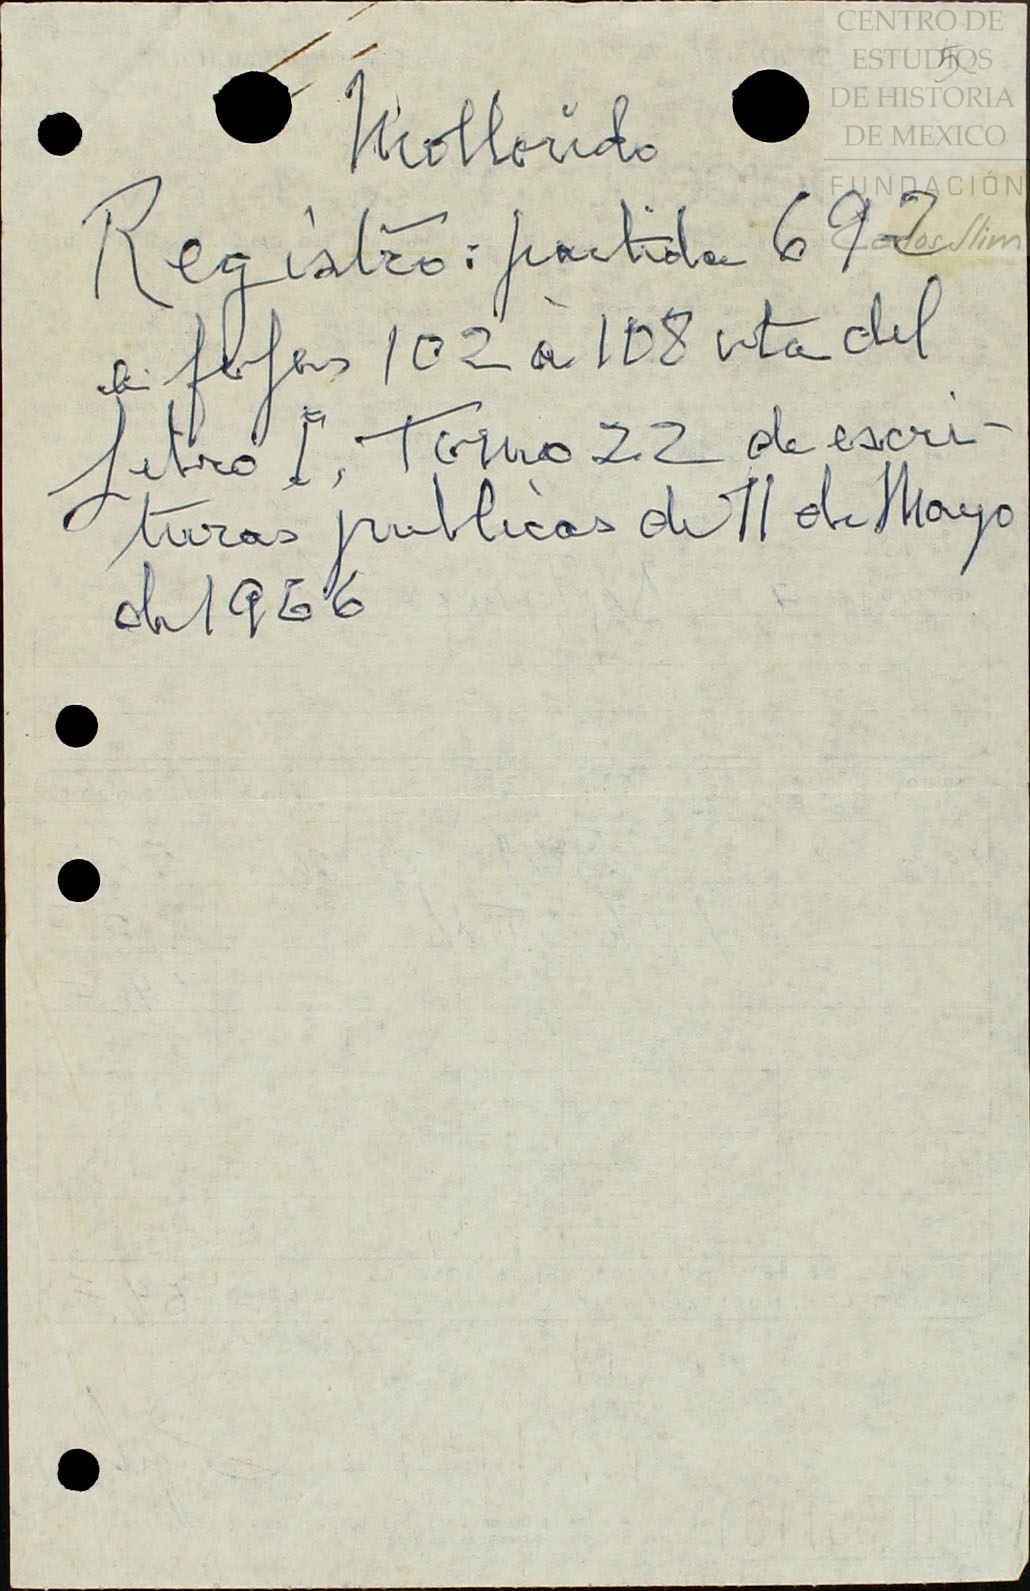 CENTRO DE
ESTUDIOS
DE HISTORIA
DE MEXICO
FUNDACIÓN
Carlos Slim
Mollorido
Registro: partida 692
a fojas 102 a 108 vta del
Libro I, Tomo 22 de escri-
turas publicas de 11 de Mayo
de 1966